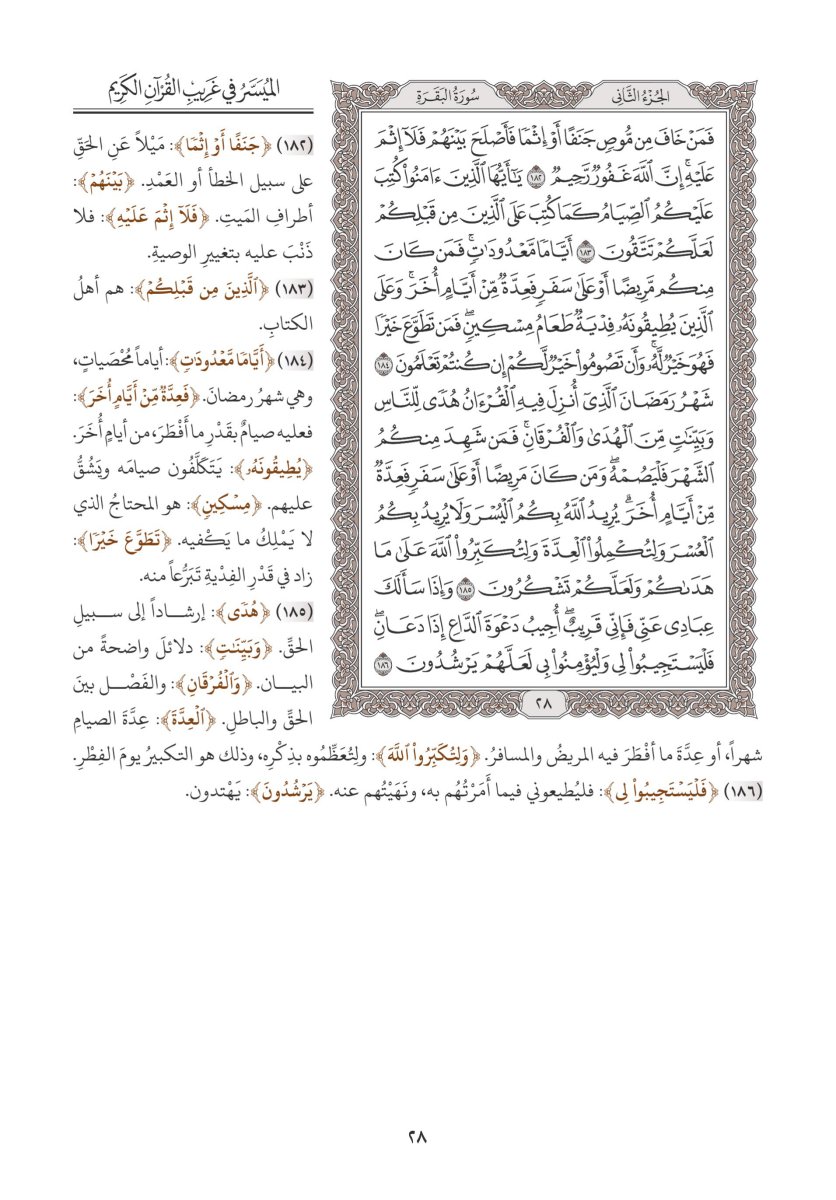 الجُزْءُ الثَّانِي
سُورَةُ البَقَرَةِ
فَمَنْ خَافَ مِن مُّوصٍ جَنَفًا أَوْ إِثْمًا فَأَصْلَحَ بَيْنَهُمْ فَلَآ إِثْمَ
عَلَيْهِۚ إِنَّ ٱللَّهَ غَفُورٌ رَّحِيمٌ ١٨٢ يَٰٓأَيُّهَا ٱلَّذِينَ ءَامَنُوا۟ كُتِبَ
عَلَيْكُمُ ٱلصِّيَامُ كَمَا كُتِبَ عَلَى ٱلَّذِينَ مِن قَبْلِكُمْ
لَعَلَّكُمْ تَتَّقُونَ ١٨٣ أَيَّامًا مَّعْدُودَٰتٍۚ فَمَن كَانَ
مِنكُم مَّرِيضًا أَوْ عَلَىٰ سَفَرٍ فَعِدَّةٌ مِّنْ أَيَّامٍ أُخَرَۚ وَعَلَى
ٱلَّذِينَ يُطِيقُونَهُۥ فِدْيَةٌ طَعَامُ مِسْكِينٍۖ فَمَن تَطَوَّعَ خَيْرًا
فَهُوَ خَيْرٌ لَّهُۥۚ وَأَن تَصُومُوا۟ خَيْرٌ لَّكُمْ إِن كُنتُمْ تَعْلَمُونَ ١٨٤
شَهْرُ رَمَضَانَ ٱلَّذِىٓ أُنزِلَ فِيهِ ٱلْقُرْءَانُ هُدًى لِّلنَّاسِ
وَبَيِّنَٰتٍ مِّنَ ٱلْهُدَىٰ وَٱلْفُرْقَانِۚ فَمَن شَهِدَ مِنكُمُ
ٱلشَّهْرَ فَلْيَصُمْهُۖ وَمَن كَانَ مَرِيضًا أَوْ عَلَىٰ سَفَرٍ فَعِدَّةٌ
مِّنْ أَيَّامٍ أُخَرَۗ يُرِيدُ ٱللَّهُ بِكُمُ ٱلْيُسْرَ وَلَا يُرِيدُ بِكُمُ
ٱلْعُسْرَ وَلِتُكْمِلُوا۟ ٱلْعِدَّةَ وَلِتُكَبِّرُوا۟ ٱللَّهَ عَلَىٰ مَا
هَدَىٰكُمْ وَلَعَلَّكُمْ تَشْكُرُونَ ١٨٥ وَإِذَا سَأَلَكَ
عِبَادِى عَنِّى فَإِنِّى قَرِيبٌۖ أُجِيبُ دَعْوَةَ ٱلدَّاعِ إِذَا دَعَانِۖ
فَلْيَسْتَجِيبُوا۟ لِى وَلْيُؤْمِنُوا۟ بِى لَعَلَّهُمْ يَرْشُدُونَ ١٨٦
٢٨
المُيَسَّرُ في غَرِيبِ القُرْآنِ الكَرِيم
(١٨٢) ﴿جَنَفًا أَوْ إِثْمًا﴾: مَيْلاً عَنِ الحَقِّ
على سبيل الخطأ أو العَمْدِ. ﴿بَيْنَهُمْ﴾:
أطرافِ المَيتِ. ﴿فَلَآ إِثْمَ عَلَيْهِ﴾: فلا
ذَنْبَ عليه بتغييرِ الوصيةِ.
(١٨٣) ﴿ٱلَّذِينَ مِن قَبْلِكُمْ﴾: هم أهلُ
الكتابِ.
(١٨٤) ﴿أَيَّامًا مَّعْدُودَٰتٍ﴾: أياماً مُحْصَياتٍ،
وهي شهرُ رمضانَ. ﴿فَعِدَّةٌ مِّنْ أَيَّامٍ أُخَرَ﴾:
فعليه صيامٌ بقَدْرِ ما أَفْطَرَ، من أيامٍ أُخَرَ.
﴿يُطِيقُونَهُۥ﴾: يَتَكَلَّفُون صيامَه ويَشُقُّ
عليهم. ﴿مِسْكِينٍ﴾: هو المحتاجُ الذي
لا يَمْلِكُ ما يَكْفيه. ﴿تَطَوَّعَ خَيْرًا﴾:
زاد في قَدْرِ الفِدْيةِ تَبَرُّعاً منه.
(١٨٥) ﴿هُدًى﴾: إرشاداً إلى سبيلِ
الحقِّ. ﴿وَبَيِّنَٰتٍ﴾: دلائلَ واضحةً من
البيان. ﴿وَٱلْفُرْقَانِ﴾: والفَصْلِ بينَ
الحقِّ والباطلِ. ﴿ٱلْعِدَّةَ﴾: عِدَّةَ الصيامِ
شهراً، أو عِدَّةَ ما أفْطَرَ فيه المريضُ والمسافرُ. ﴿وَلِتُكَبِّرُوا۟ ٱللَّهَ﴾: ولِتُعَظِّمُوه بذِكْرِه، وذلك هو التكبيرُ يومَ الفِطْرِ.
(١٨٦) ﴿فَلْيَسْتَجِيبُوا۟ لِى﴾: فليُطيعوني فيما أَمَرْتُهُم به، ونَهَيْتُهم عنه. ﴿يَرْشُدُونَ﴾: يَهْتدون.
٢٨